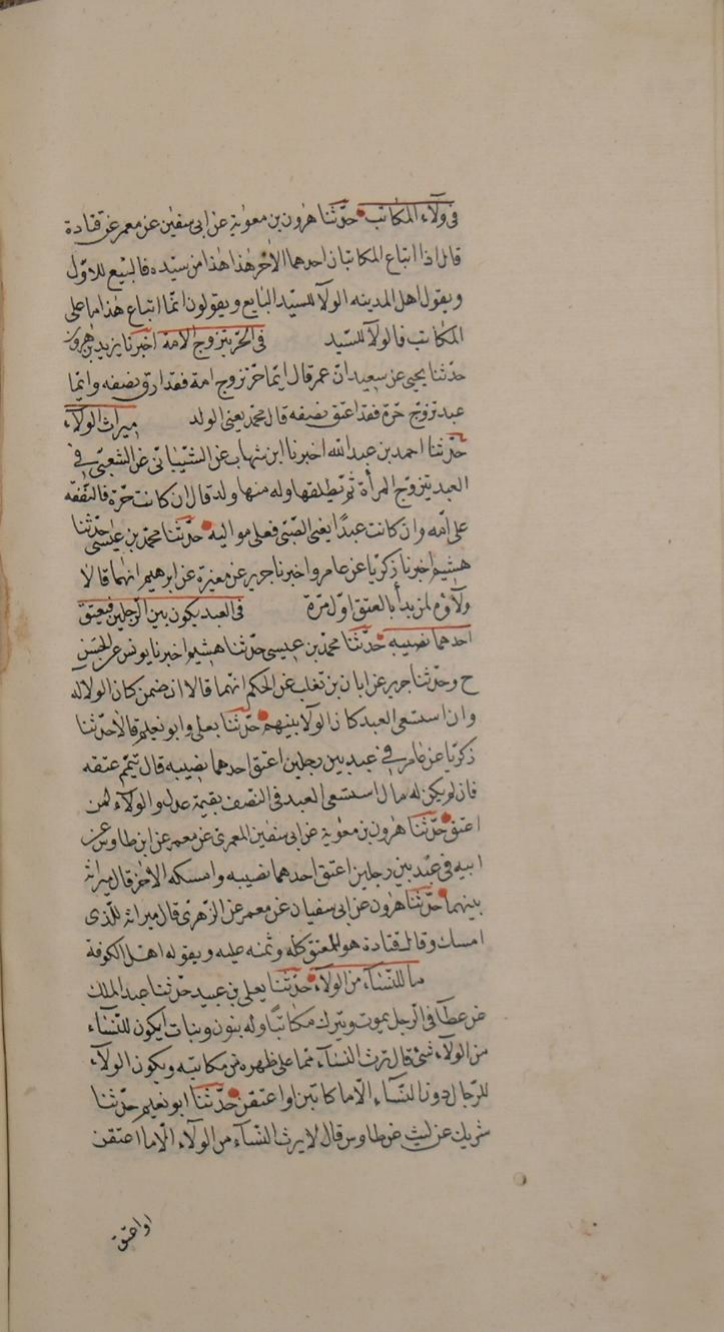 فى ولآء المكاتب حدّثنا هٰرون بن معوية عن ابى سفيٰن عن معمر عن قتادة
قال اذا ابتاع المكاتبان احدهما الاٰخر هٰذا هٰذا من سيّده فالبيع للاوّل
ويقول اهل المدينه الولآ للسيّد البايع ويقولون انّما ابتاع هٰذا ما على
المكاتب فالولآ للسّيد فى الحرّ يتزوج الامة اخبرنا يزيد بن هٰرون
حدّثنا يحيى عن سعيد انّ عمر قال ايّما حرّ تزوج امة فقد ارق نصفه وايّما
عبد تزوّج حرّة فقد اعتق نصفه قال محمّد يعنى الولد ميراث الولآء
حدّثنا احمد بن عبد الله اخبرنا ابن شهاب عن الشّيبانى عن الشعبى فى
العبد يتزوج المرأة ثم يطلقها وله منها ولد قال ان كانت حرّة فالنّفقه
على امّه وان كانت عبدًا يعنى الصّبى فعلى مواليه حدّثنا محمّد بن عيسى حدّثنا
هشيم اخبرنا زكريّا عن عامر واخبرنا جرير عن مغيرة عن ابرهيم انهما قالا
ولآؤه لمن بدأ بالعتق اوّل مرّة فى العبد يكون بين الرّجلين فيعتق
احدهما نصيبه حدّثنا محمّد بن عيسى حدّثنا هشيم اخبرنا يونس عن الحسن
ح وحدّثنا جرير عن ابان بن تغلب عن الحكم انّهما قالا ان ضمن كان الولآ له
وان استسعى العبد كان الولآ بينهم حدّثنا يعلى وابو نعيم قالا حدّثنا
زكريّا عن عامر فى عبد بين رجلين اعتق احدهما نصيبه قال يتمّم عتقه
فان لم يكن له مال استسعى العبد فى النّصف بقيمة عدل والولآء لمن
اعتق حدّثنا هٰرون بن معوية عن ابى سفيٰن المعمرى عن معمر عن ابن طاوس عن
ابيه فى عبد بين رجلين اعتق احدهما نصيبه وامسكه الاٰخر قال ميراثه
بينهما حدّثنا هٰرون عن ابى سفيان عن معمر عن الزّهرى قال ميراثه للّذى
امسك وقال قتادة هو للمعتق كلّه وثمنه عليه ويقوله اهل الكوفة
ما للنّسآء من الولآء حدّثنا يعلى بن عبيد حدّثنا عبد الملك
عن عطآ فى الرّجل يموت ويترك مكاتبًا وله بنون وبنات ايكون للنّسآء
من الولآء شئ قال ترث النسآء ممّا على ظهره من مكاتبته ويكون الولآء
للرّجال دون النّسآء الّا ما كاتبن او اعتقن حدّثنا ابو نعيم حدّثنا
شريك عن ليث عن طاوس قال لا يرث النّسآء من الولآء الّا ما اعتقن
او اعتق